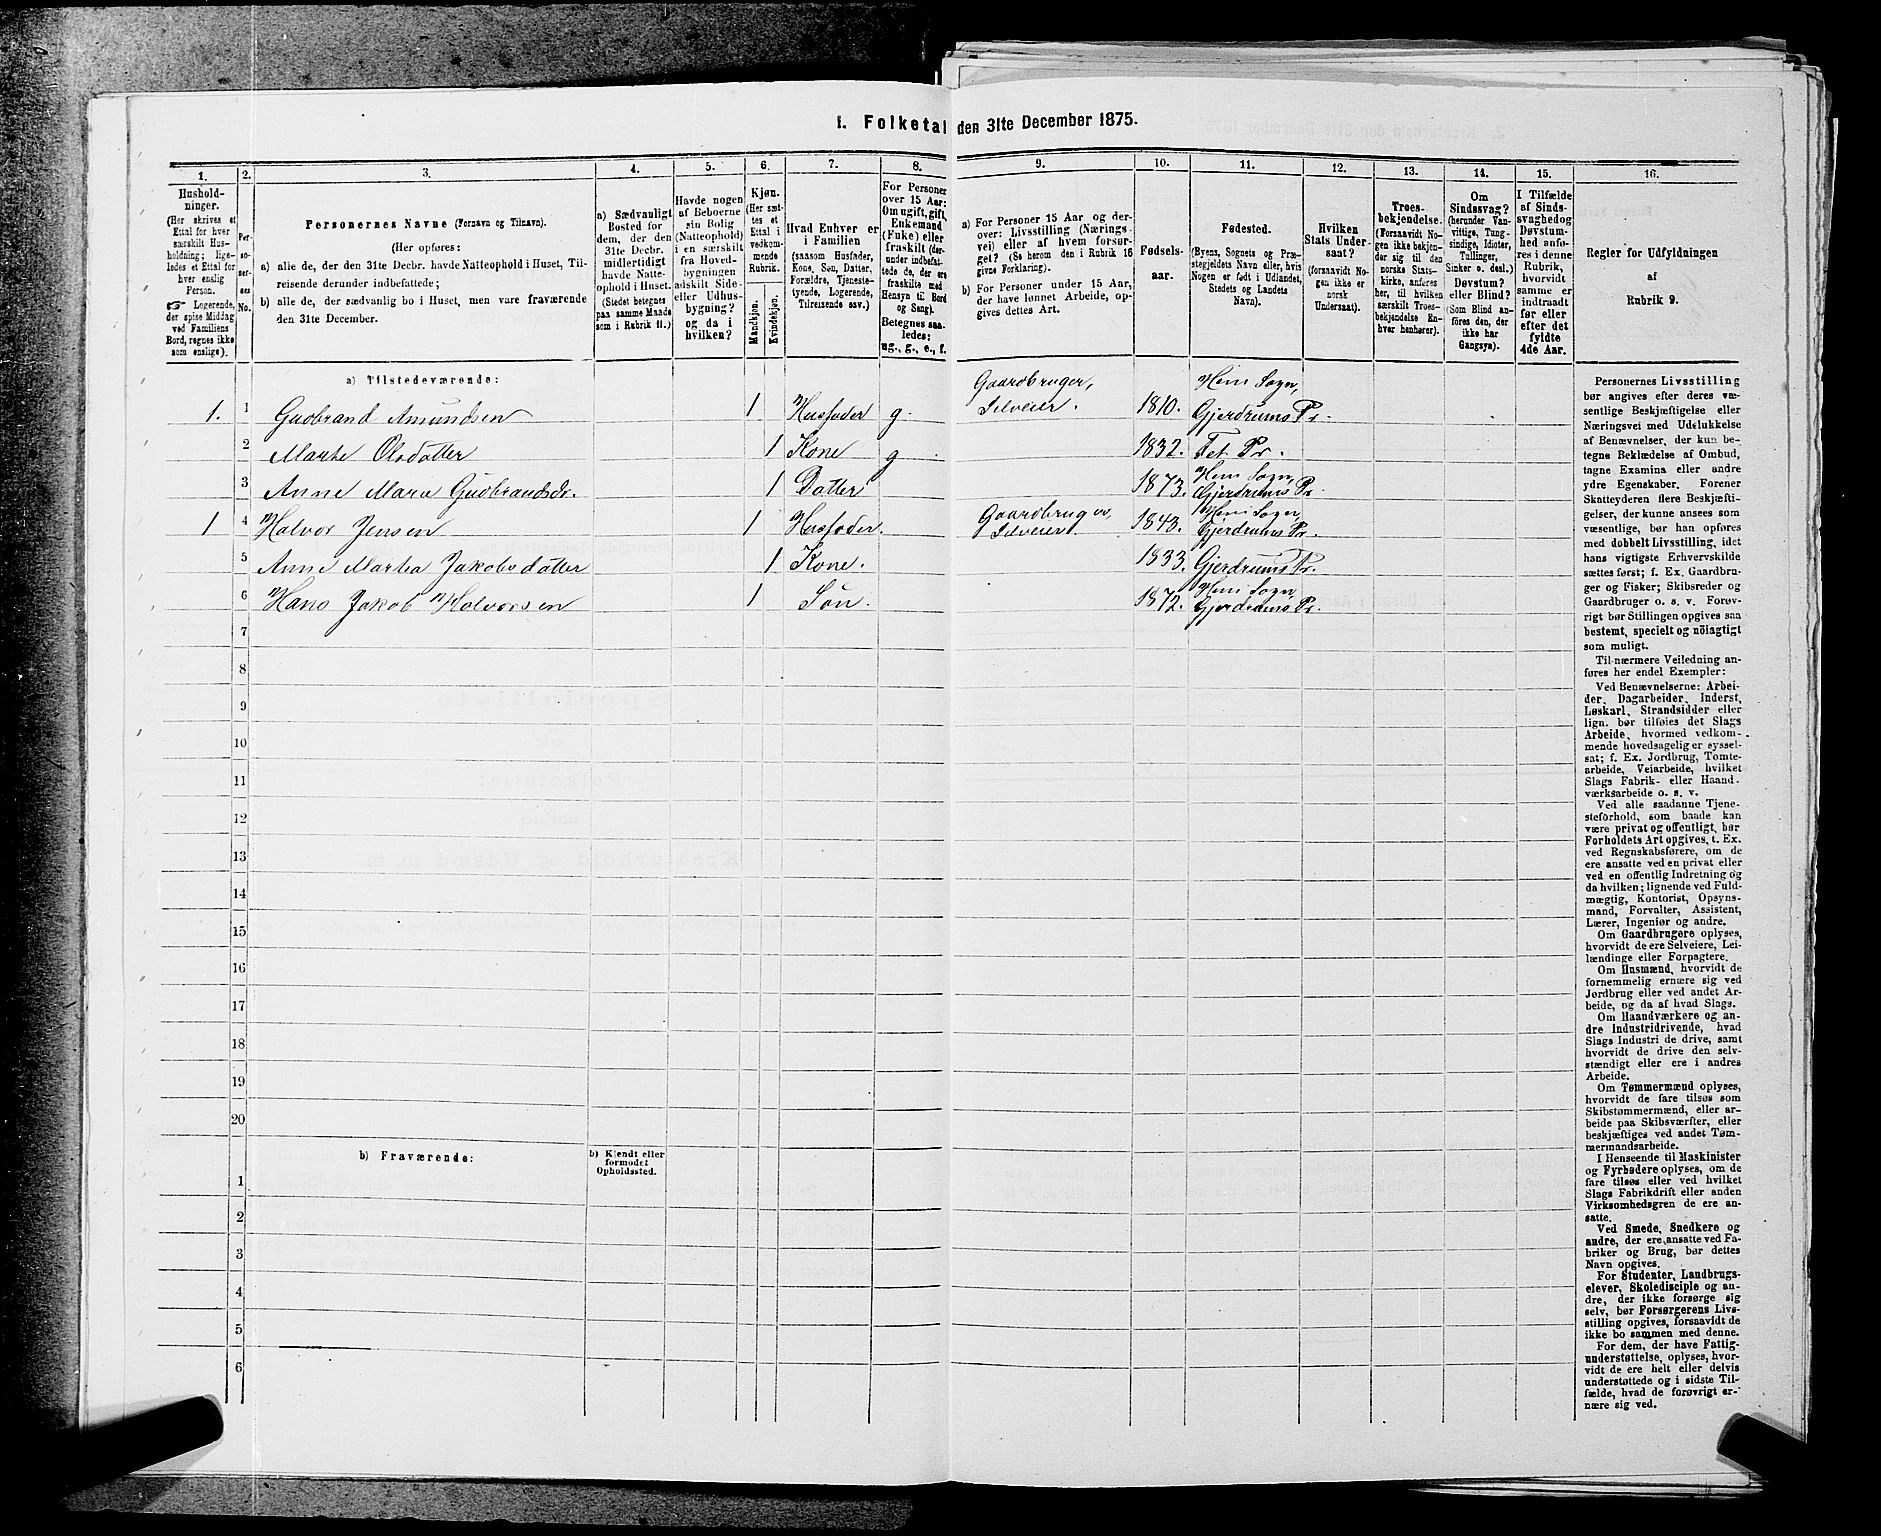 1. Folketal den 31te December 1875.
1. 2. 3. 4. 5. 6. 7. 8. 9. 10. 11. 12. 13. 14. 15. 16.
Hushold-
ninger.
(Her skrives et
Ettal for hver
særskilt Hus-
holdning; lige-
ledes et Ettal for
hver enslig
Person.
☞ Logerende,
der spise Middag
ved Familiens
Bord, regnes ikke
som enslige).
Per-
so-
ner-
nes
No.
Personernes Navne (Fornavn og Tilnavn).
(Her opføres:
a) alle de, der den 31te Decbr. havde Natteophold i Huset, Til-
reisende derunder indbefattede;
b) alle de, der sædvanlig bo i Huset, men vare fraværende
den 31te December.
a) Sædvanligt
Bosted for
dem, der den
31te Decbr.
midlertidigt
havde Natte-
ophold i Huset.
(Stedet betegnes
paa samme Maade
som i Rubrik 11.)
Havde nogen
af Beboerne
sin Bolig
(Natteophold)
i en særskilt
fra Hoved-
bygningen
adskilt Side-
eller Udhus-
bygning?
og da i
hvilken?
Kjøn.
(Her sæt-
tes et
Ettal i
vedkom-
mende
Rubrik.
Mandkjøn.
Kvindekjøn.
Hvad Enhver er
i Familien
(saasom Husfader,
Kone, Søn, Datter,
Forældre, Tjeneste-
tyende, Logerende,
Tilreisende osv.)
For Personer
over 15 Aar:
Om ugift, gift,
Enkemand
(Enke) eller
fraskilt (der-
under indbefat-
tede de, der ere
fraskilte med
Hensyn til Bord
og Seng).
Betegnes saa-
ledes:
ug., g., e., f.
a) For Personer 15 Aar og der-
over: Livsstilling (Nærings-
vei) eller af hvem forsør-
get? (Se herom den i Rubrik 16
givne Forklaring).
b) For Personer under 15 Aar,
der have lønnet Arbeide, op-
gives dettes Art.
Fødsels-
aar.
Fødested.
(Byens, Sognets og Præ-
stegjeldets Navn eller, hvis
Nogen er født i Udlandet,
Stedets og Landets
Navn).
Hvilken
Stats Under-
saat?
(forsaavidt No-
gen ikke er
norsk
Undersaat).
Troes-
bekjendelse.
(Forsaavidt No-
gen ikke bekjen-
der sig til den
norske Stats-
kirke, anføres
her, til hvilken
særskilt Troes-
bekjendelse En-
hver henhører).
Om
Sindssvag?
(herunder Van-
vittige, Tung-
sindige, Idioter,
Tullinger,
Sinker o. desl.)
Døvstum?
eller Blind?
(Som Blind an-
føres den, der
ikke har
Gangsyn).
I Tilfælde
af Sinds-
svaghed og
Døvstum-
hed anfø-
res i denne
Rubrik,
hvorvidt
samme er
indtraadt
før eller
efter det
fyldte
4de Aar.
Regler for Udfyldningen
af
Rubrik 9.
a) Tilstedeværende:
1. 1 Gudbrand Amundsen 1 Husfader g. Gaardbruger, Selveier. 1810. Heni Sogn, Gjerdrums Pr.
2 Marthe Olsdatter 1 Kone g 1832. Fet Pr.
3 Anne Mara Gudbrandsdr. 1 Datter 1873. Heni Sogn, Gjerdrums Pr.
1 4 Halvor Jensen 1 Husfader. Gaardbruger, Selveier. 1843. Heni Sogn, Gjerdrums Pr.
5 Anne Marthea Jakobsdatter 1 Kone. 1833. Gjerdrums Pr.
6 Hans Jakob Halvorsen 1 Søn. 1872. Heni Sogn, Gjerdrums Pr.
7
8
9
10
11
12
13
14
15
16
17
18
19
20
b) Fraværende:
b) Kjendt eller
formodet
Opholdssted.
1
2
3
4
5
6
Personernes Livsstilling
bør angives efter deres væ-
sentlige Beskjæftigelse eller
Næringsvei med Udelukkelse
af Benævnelser, der kun be-
tegne Beklædelse af Ombud,
tagne Examina eller andre
ydre Egenskaber. Forener
Skatteyderen flere Beskjæfti-
gelser, der kunne ansees som
væsentlige, bør han opføres
med dobbelt Livsstilling, idet
hans vigtigste Erhvervskilde
sættes først; f. Ex. Gaardbru-
ger og Fisker; Skibsreder og
Gaardbruger o. s. v. Forøv-
rigt bør Stillingen opgives saa
bestemt, specielt og nöiagtigt
som muligt.
Til nærmere Veiledning an-
føres her endel Exempler:
Ved Benævnelserne: Arbei-
der, Dagarbeider, Inderst,
Løskarl, Strandsidder eller
lign. bør tilføies det Slags
Arbeide, hvormed vedkom-
mende hovedsagelig er syssel-
sat; f. Ex. Jordbrug, Tomte-
arbeide, Veiarbeide, hvilket
Slags Fabrik- eller Haand-
værksarbeide o. s. v.
Ved alle saadanne Tjene-
steforhold, som baade kan
være privat og offentligt, bør
Forholdets Art opgives, t. Ex.
ved Regnskabsførere, om de
ere ansatte ved en privat eller
ved en offentlig Indretning og
da hvilken; lignende ved Fuld-
mægtig, Kontorist, Opsyns-
mand, Forvalter, Assistent,
Lærer, Ingeniør og andre.
Om Gaardbrugere oplyses,
hvorvidt de ere Selveiere, Lei-
lændinge eller Forpagtere.
Om Husmænd, hvorvidt de
fornemmelig ernære sig ved
Jordbrug eller ved andet Ar-
beide, og da af hvad Slags.
Om Haandværkere og an-
dre Industridrivende, hvad
Slags Industri de drive, samt
hvorvidt de drive den selv-
stændigt eller ere i andres
Arbeide.
Om Tømmermænd oplyses,
hvorvidt de fare tilsøs som
Skibstømmermænd, eller ar-
beide paa Skibsværfter, eller
beskjæftiges ved andet Tøm-
mermandsarbeide.
I Henseende til Maskinister
og Fyrbødere oplyses, om de
fare tilsøs eller ved hvilket
Slags Fabrikdrift eller anden
Virksomhedsgren de ere an-
satte.
Ved Smede, Snedkere og
andre, der ere ansatte ved Fa-
briker og Brug, bør dettes
Navn opgives.
For Studenter, Landbrugs-
elever, Skoledisciple og an-
dre, der ikke forsørge sig
selv, bør Forsørgerens Livs-
stilling opgives, forsaavidt de
ikke bo sammen med denne.
For dem, der have Fattig-
understøttelse, oplyses, hvor-
vidt de ere helt eller delvis
understøttede og i sidste Til-
fælde, hvad de forøvrigt er-
nære sig ved.